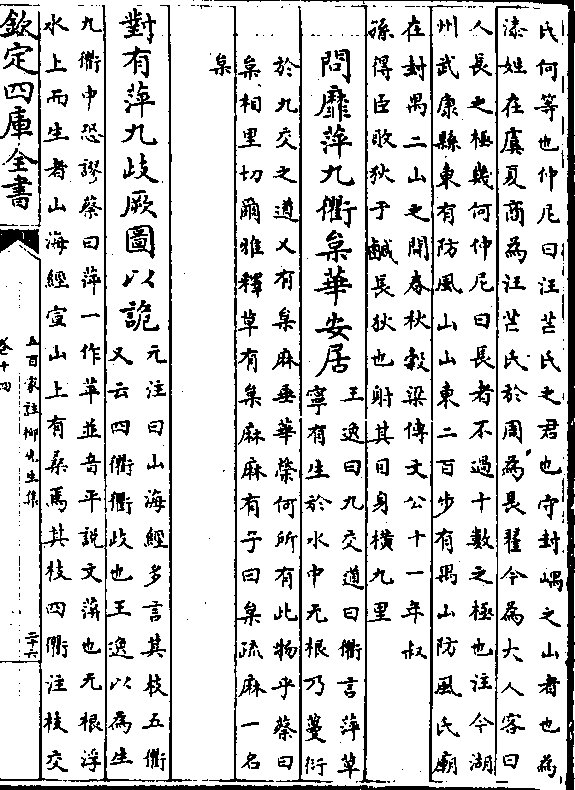 氏何等也仲尼曰汪芒氏之君也守封嵎之山者也為
漆姓在虞夏商為汪芒氏於周為長翟今為大人客曰
人長之極幾何仲尼曰長者不過十數之極也注今湖
州武康縣東有防風山山東二百步有禺山防風氏廟
在封禺二山之間春秋穀梁傳文公十一年叔
孫得臣敗狄于鹹長狄也射其目身橫九里
問靡蓱九衢枲華安居
王逸曰九交道曰衢言蓱草
寧有生於水中无根乃蔓衍
於九交之道又有枲麻垂華榮何所有此物乎蔡曰
枲相里切爾雅釋草有枲麻麻有子曰枲疏麻一名
枲
對有蓱九歧厥圖以詭
元注曰山海經多言其枝五衢
又云四衢衢歧也王逸以為生
九衢中恐謬蔡曰蓱一作苹並音平說文蓱也无根浮
水上而生者山海經宣山上有桑焉其枝四衢注枝交
欽定四庫全書
五百家註柳先生集
卷十四
二十六